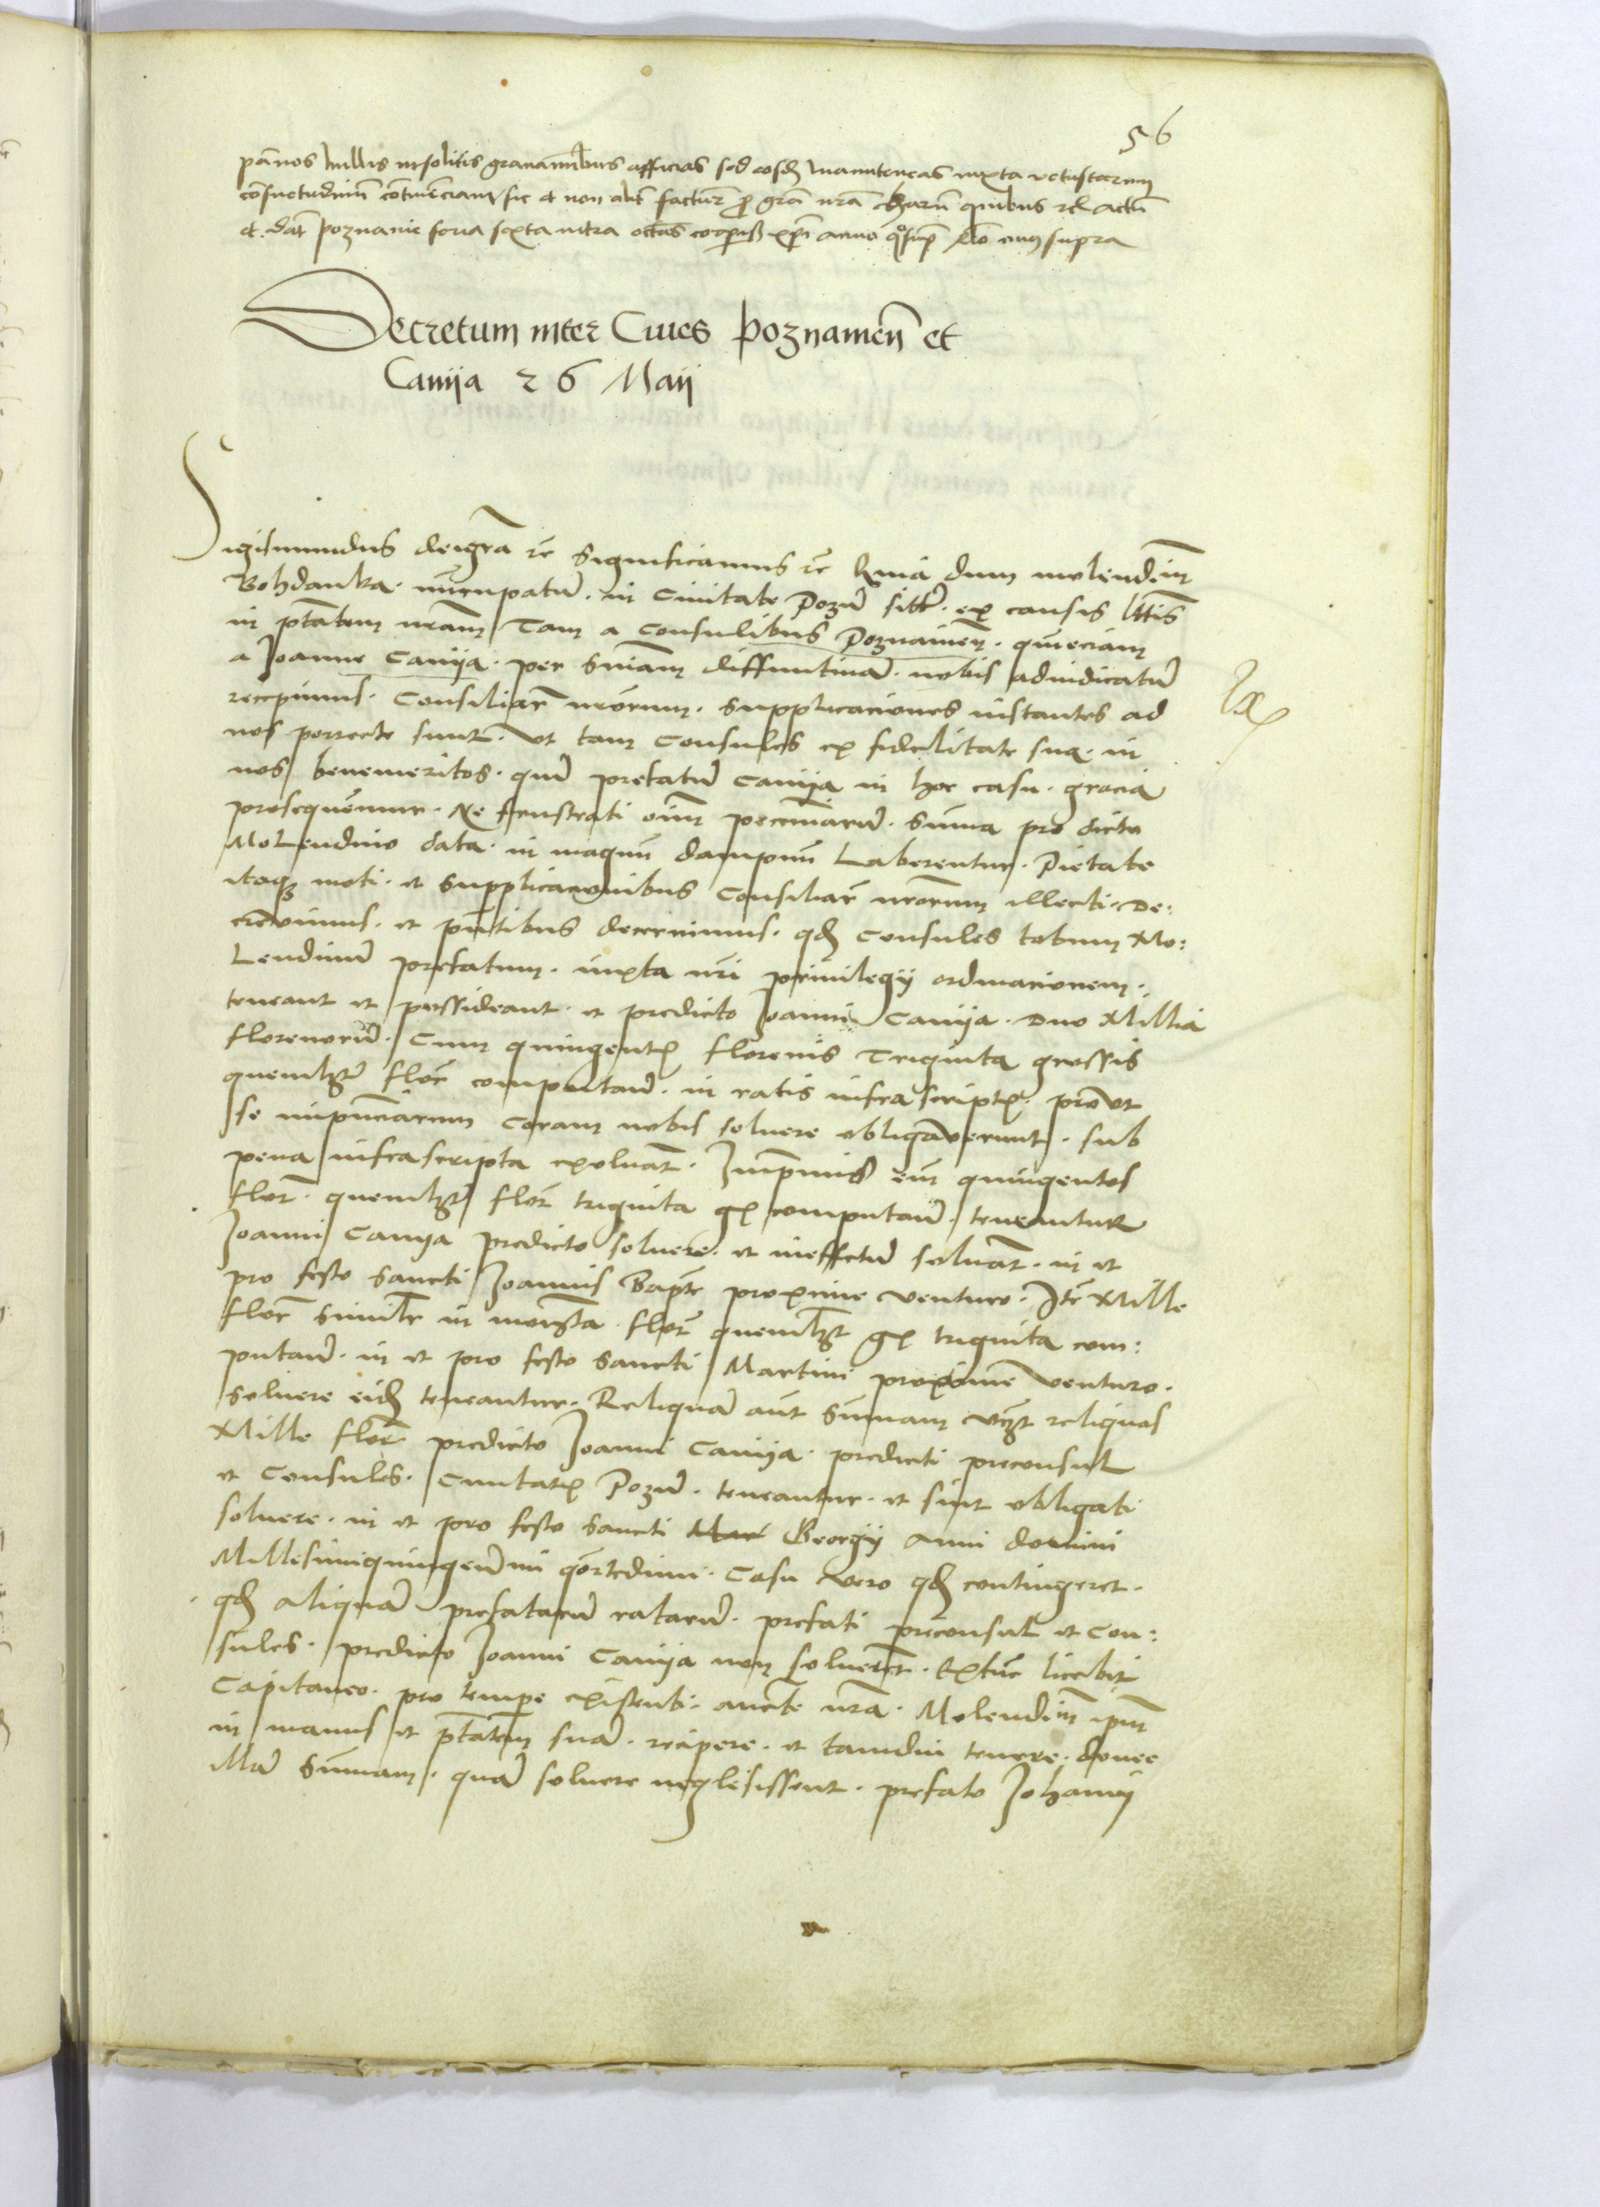 56
pannos nullis insolitis gravaminibus afficias sed eosdem manuteneas iuxta vetustarum
consuetudinum continenciam sic et non aliter facturus pro gra nra harum quibus rel actum
et dat Poznanie feria sexta infra octavas corporis xpi anno quo supra
Decretum inter Ciues Poznanien et
Canija 26 Maij
Sigismundus dei gra rc Significamus rc Quia dum molendinum
Bohdanka. nuncupatum. in Ciuitate Pozn sittum. ex causis
in ptatem nram Tam a Consulibus Poznanien. qui eciam
a Joanne Canija. per sniam diffinitiuam. nobis adiudicatum
recepimus. Consiliar nrorum. supplicaciones instantes ad
nos porrecte sunt. ut tam Consules ex fidelitate sua. in
nos benemeritos. quam prefatum Canija in hoc casu. gracia
prosequeremur. Ne frustrati eium pecuniarum. Summa pro dicto
Molendino data. in magnum dampnum Laberentur. Pietate
itaque moti. et supplicacionibus Consiliar nrorum illecti. De:
creuimus. et pntibus decernimus. qd Consules totum Mo:
Lendinum prefatum. iuxta nri priuilegij ordinacionem.
teneant et possideant. et predicto Joanni Canija. Duo Millia
florenorum. Cum quingentis florenis Triginta grossis
quemlibet flor computan. in ratis infrascriptis. prout
se nipunarum Coram nobis soluere obligauerunt. sub
pena infrascripta exoluat. Inprimis eni quingentos
flor. quemlibet flor triginta gr computan. teneantur
Joanni Canija predicto soluere. et in effectum soluant. in et
pro festo Sancti Joannis Bapte proxime venturo. Ite Mille
flor similr in moneta. flor quemlibet gr triginta com:
putan. in et pro festo Sancti Martini proxime venturo.
soluere eid teneantur. Reliquam aut summam vcz reliquos
Mille flor. predicto Joanni Canija. predicti preconsul
et Consules. Ciuitatis Pozn. teneantur. et sint obligati
soluere. in et pro festo Sancti Mar Georgij anni domini
Millesimiquingentmi qortedimi. Casu vero qd contingeret.
qd aliquam prefatarum ratarum. prefati preconsul et Con:
sules. predicto Joanni Canija non soluerent. Extunc licebit
Capitaneo. pro tempore existenti. aucte nra. Molendinum ipm
in manus et ptatem suam. recipere. et tamdiu tenere. donec
illam Summam. quam soluere neglesissent. prefato Johanni